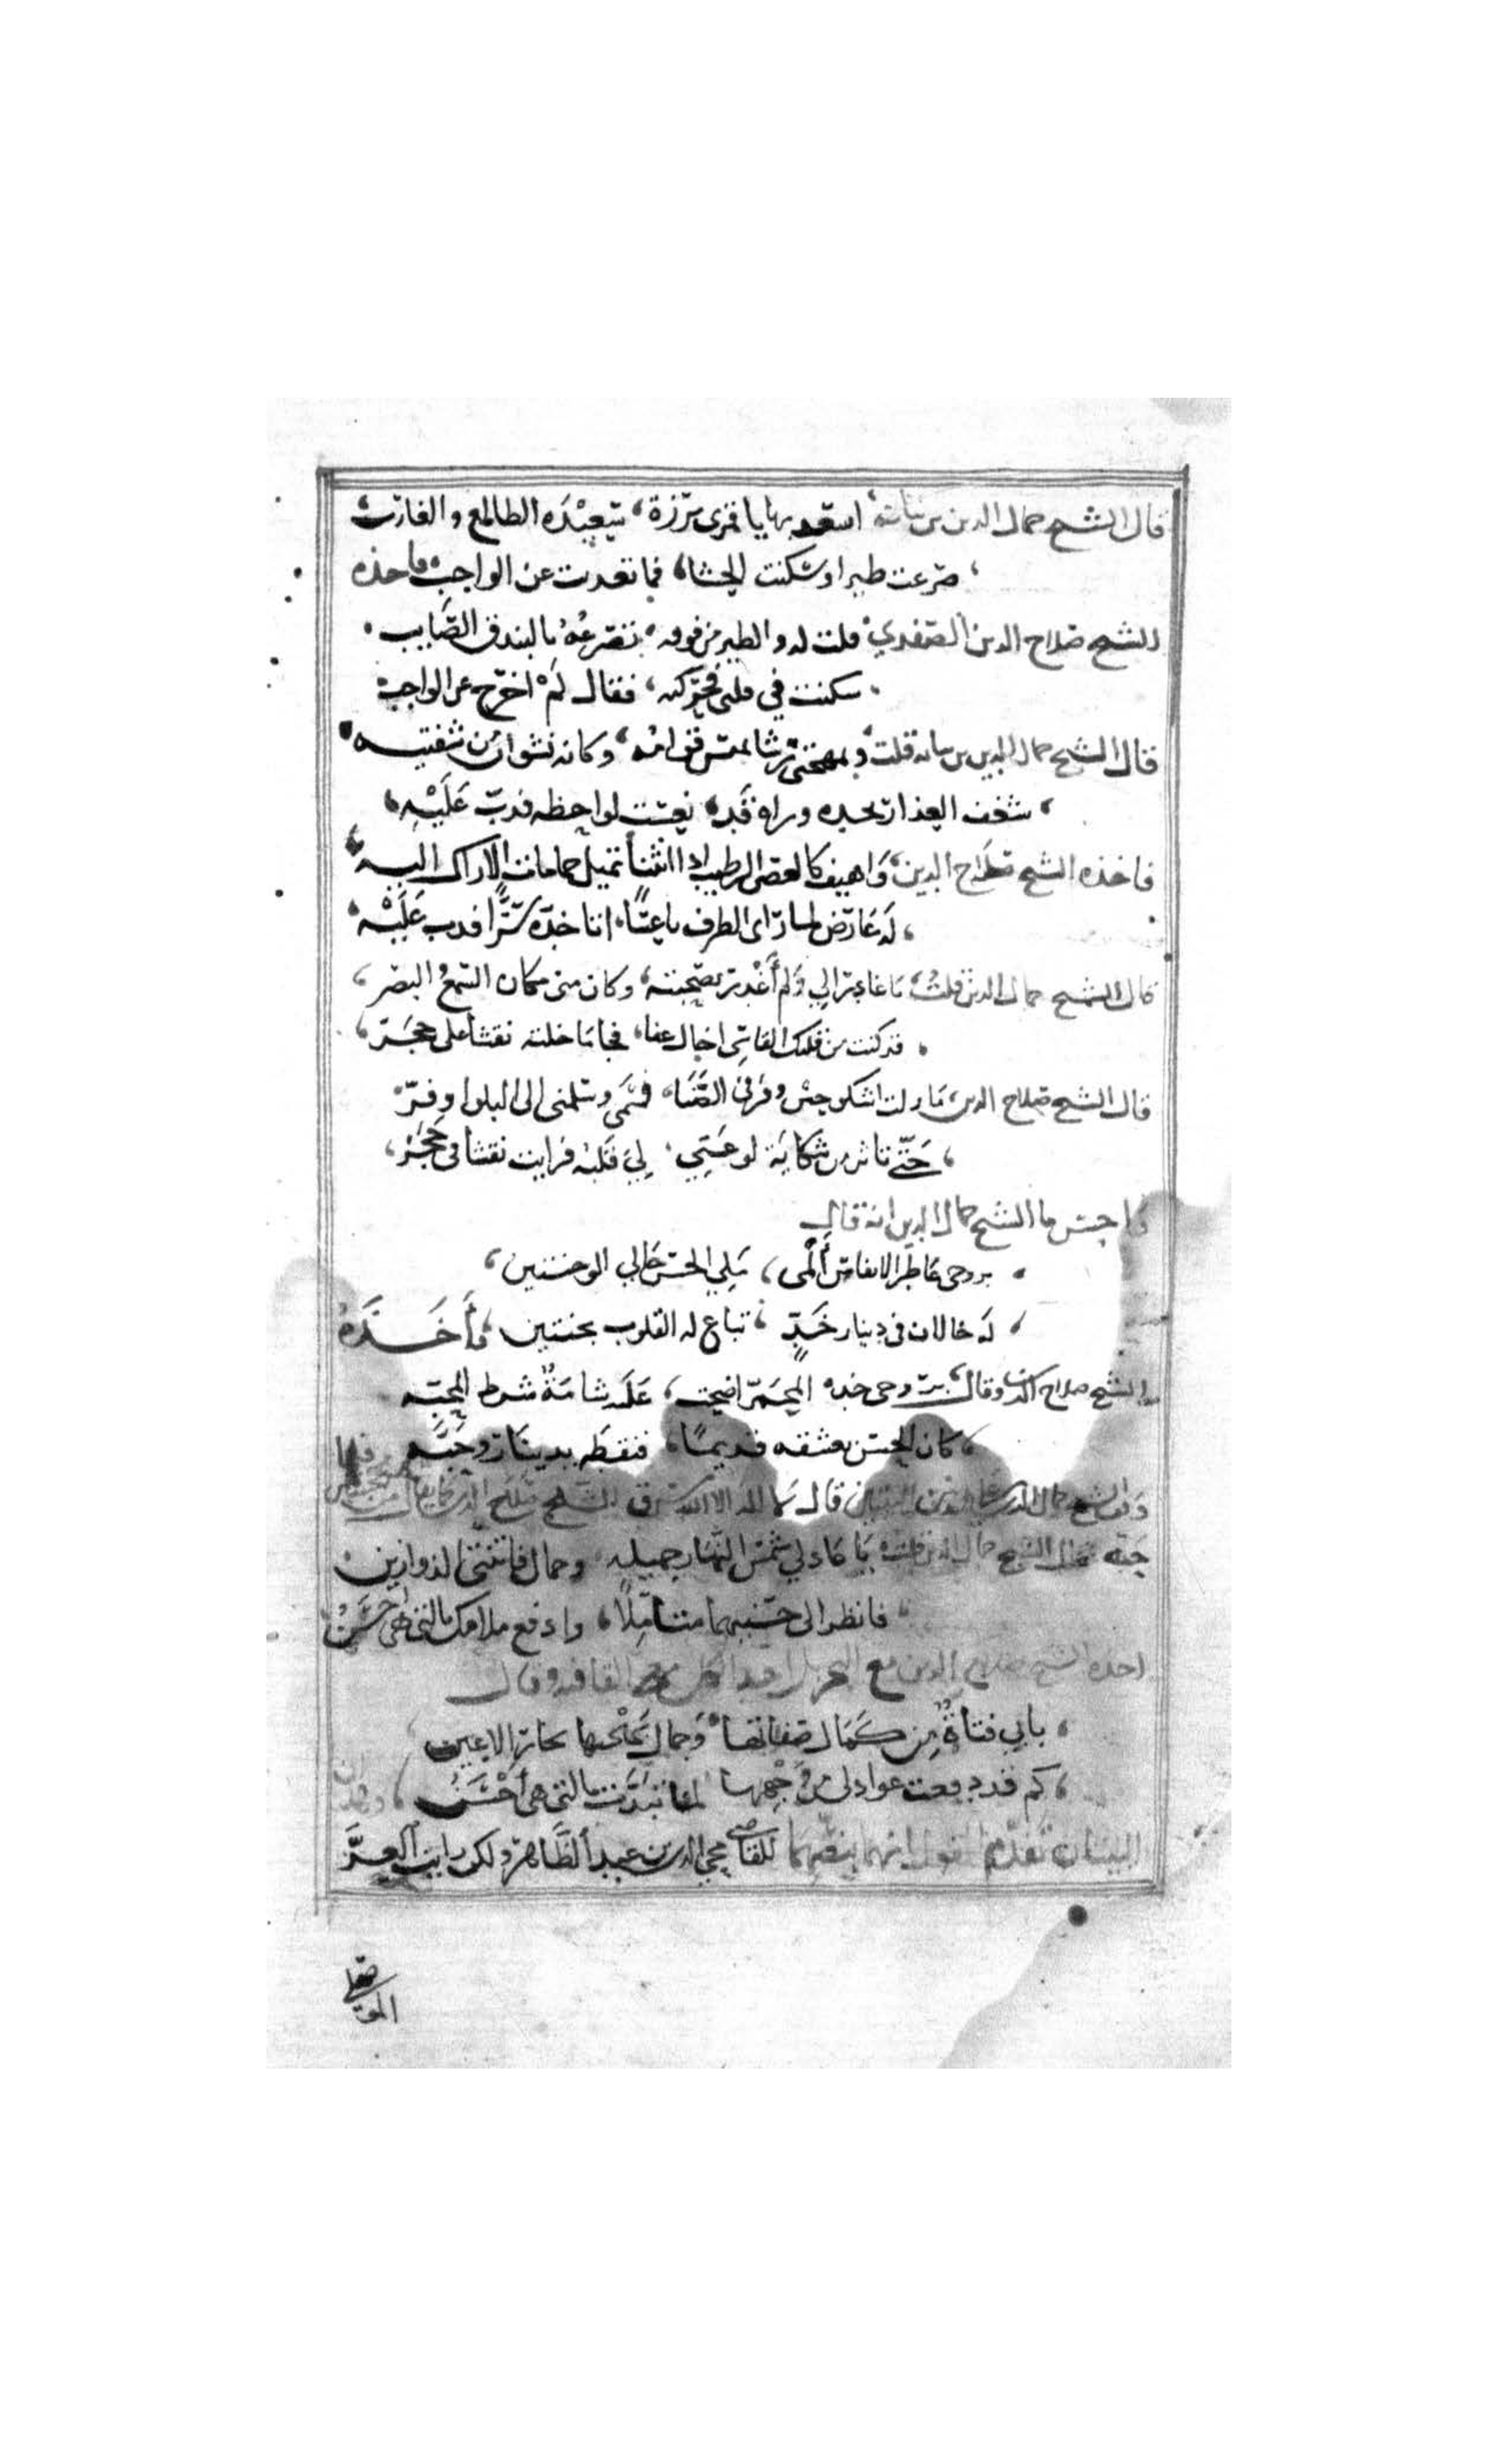 قال الشيخ جمال الدين بن نباتة اسعد بها يا قمرى برزة، سعيدة الطالع والغارب
صرعت طيرا وسكنت الحشا، فما تعديت عن الواجب فاخذه
الشيخ صلاح الدين الصفدي قلت له والطير من فوقه، تصرعه بالبندق الصايب
سكنت في قلبى فحركته، فقال لم اخرج عن الواجب
قال الشيخ جمال الدين بن نباته قلت وبمهجتى رشا يميس قوامه، وكانه نشوان من شفتيه
شغف العذار بخده وراه قد، نعست لواحظه فدب عليه
فاخذه الشيخ صلاح الدين، واهيف كالغصن الرطيب اذا انثنا تميل حمامات الاراك اليه
له عارض لما راى الطرف ناعسًا، اتا خده سرًا فدب عليه
قال الشيخ جمال الدين قلت، يا غادرا لي ولم أغدر بصحبته، وكان منى مكان السمع البصر
قد كنت من قلبك القاسى اخال جفا، فجا ما خلته نقشا على حجر
قال الشيخ صلاح الدين ما زلت اشكو حين وفر لى الضنا، قسمى وسلمنى الى البلوا وفر
حتى تاثر من شكاية لوعتي، لي قلبه فرايت نقشا فى حجر
واحسن ما الشيخ جمال الدين انه قال
بروحى عاطر الانفاس ألمى، ملي الحسن حالي الوجنتين
له خالان فى دينار خد، تباع له القلوب بحبتين، فأخذه
الشيخ صلاح الدين وقال، بروحى خده المحمر اضحت، عليه شامة شرط المحبه
كان الحسن يعشقه قديمًا، فنقطه بدينار وحبه
وقف الشيخ جمال الدين على هذين البيتين قال لا اله الا الله سرق الشيخ صلاح الدين كما يقال من
حبه قال الشيخ جمال الدين قلت يا عاذلي شمس النهار جميله، وجمال فاتنتى الذ وازين
فانظر الى حسنيهما متاملًا، وادفع ملامك بالتى هى احسن
اخذه الشيخ صلاح الدين مع القافيه وقال
بابي فتاة من كمال صفاتها، وجمال بهجتها تحار الاعين
كم قد دفعت عواذلى عن وجهها لما تبدت بالتى هى أحسن، وهذان
البيتان تقدم القول انهما بنصهما للقاضي محيي الدين بن عبد الظاهر ولكن رايت العز
الموصلي